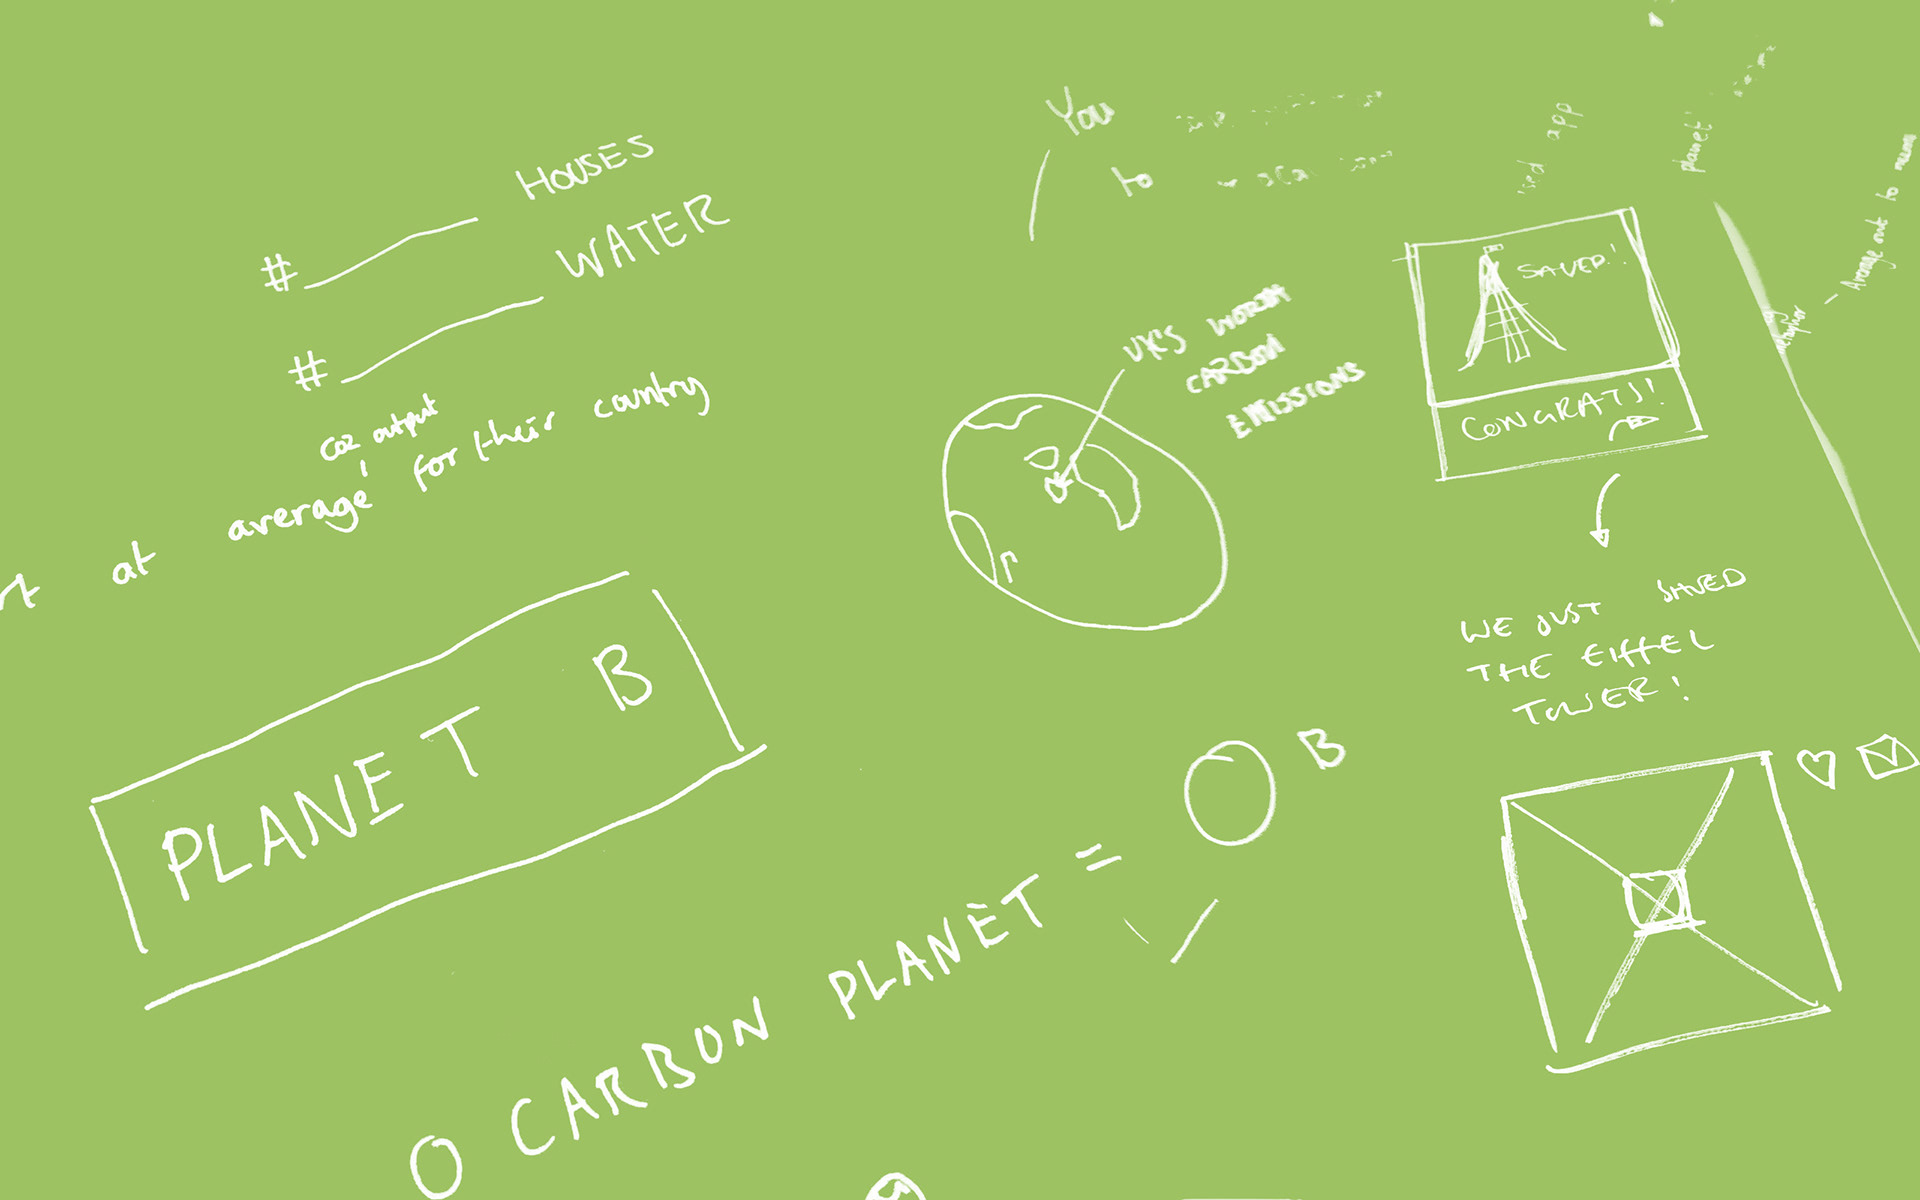 # ______ HOUSES
# ______ WATER
CO2 output
at average for their country
PLANET B
0 CARBON PLANET = O B
You
to
UK'S WORTH
CARBON
EMISSIONS
app
planet
Average out to
higher
SAVED!
CONGRATS!
WE JUST SAVED
THE EIFFEL
TOWER!